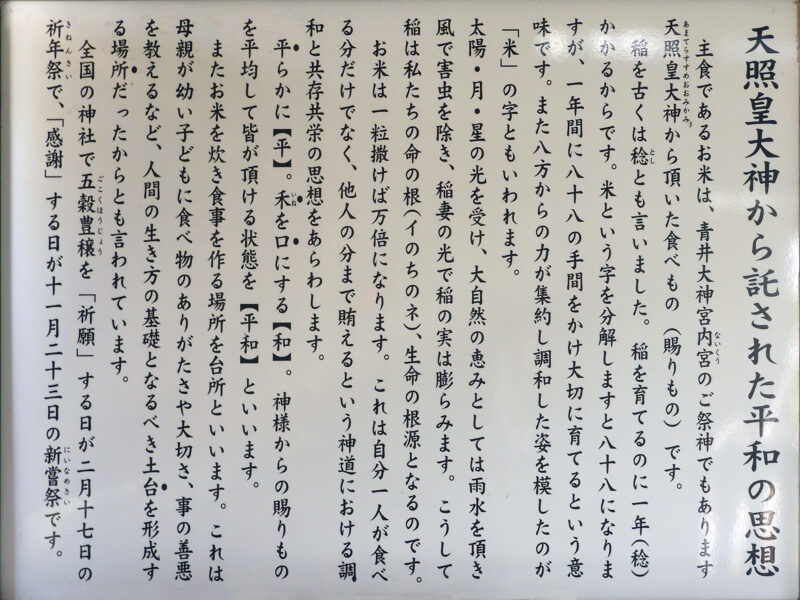 天照皇大神から託された平和の思想
主食であるお米は、青井大神宮内宮のご祭神でもあります
天照皇大神から頂いた食べもの（賜りもの）です。
稲を古くは稔とも言いました。稲を育てるのに一年（稔）
かかるからです。米という字を分解しますと八十八になりま
すが、一年間に八十八の手間をかけ大切に育てるという意
味です。また八方からの力が集約し調和した姿を模したのが
「米」の字ともいわれます。
太陽・月・星の光を受け、大自然の恵みとしては雨水を頂き
風で害虫を除き、稲妻の光で稲の実は膨らみます。こうして
稲は私たちの命の根（イのちのネ）、生命の根源となるのです。
お米は一粒撒けば万倍になります。これは自分一人が食べ
る分だけでなく、他人の分まで賄えるという神道における調
和と共存共栄の思想をあらわします。
平らかに【平】。禾を口にする【和】。神様からの賜りもの
を平均して皆が頂ける状態を【平和】といいます。
またお米を炊き食事を作る場所を台所といいます。これは
母親が幼い子どもに食べ物のありがたさや大切さ、事の善悪
を教えるなど、人間の生き方の基礎となるべき土台を形成す
る場所だったからとも言われています。
全国の神社で五穀豊穣を「祈願」する日が二月十七日の
祈年祭で、「感謝」する日が十一月二十三日の新嘗祭です。